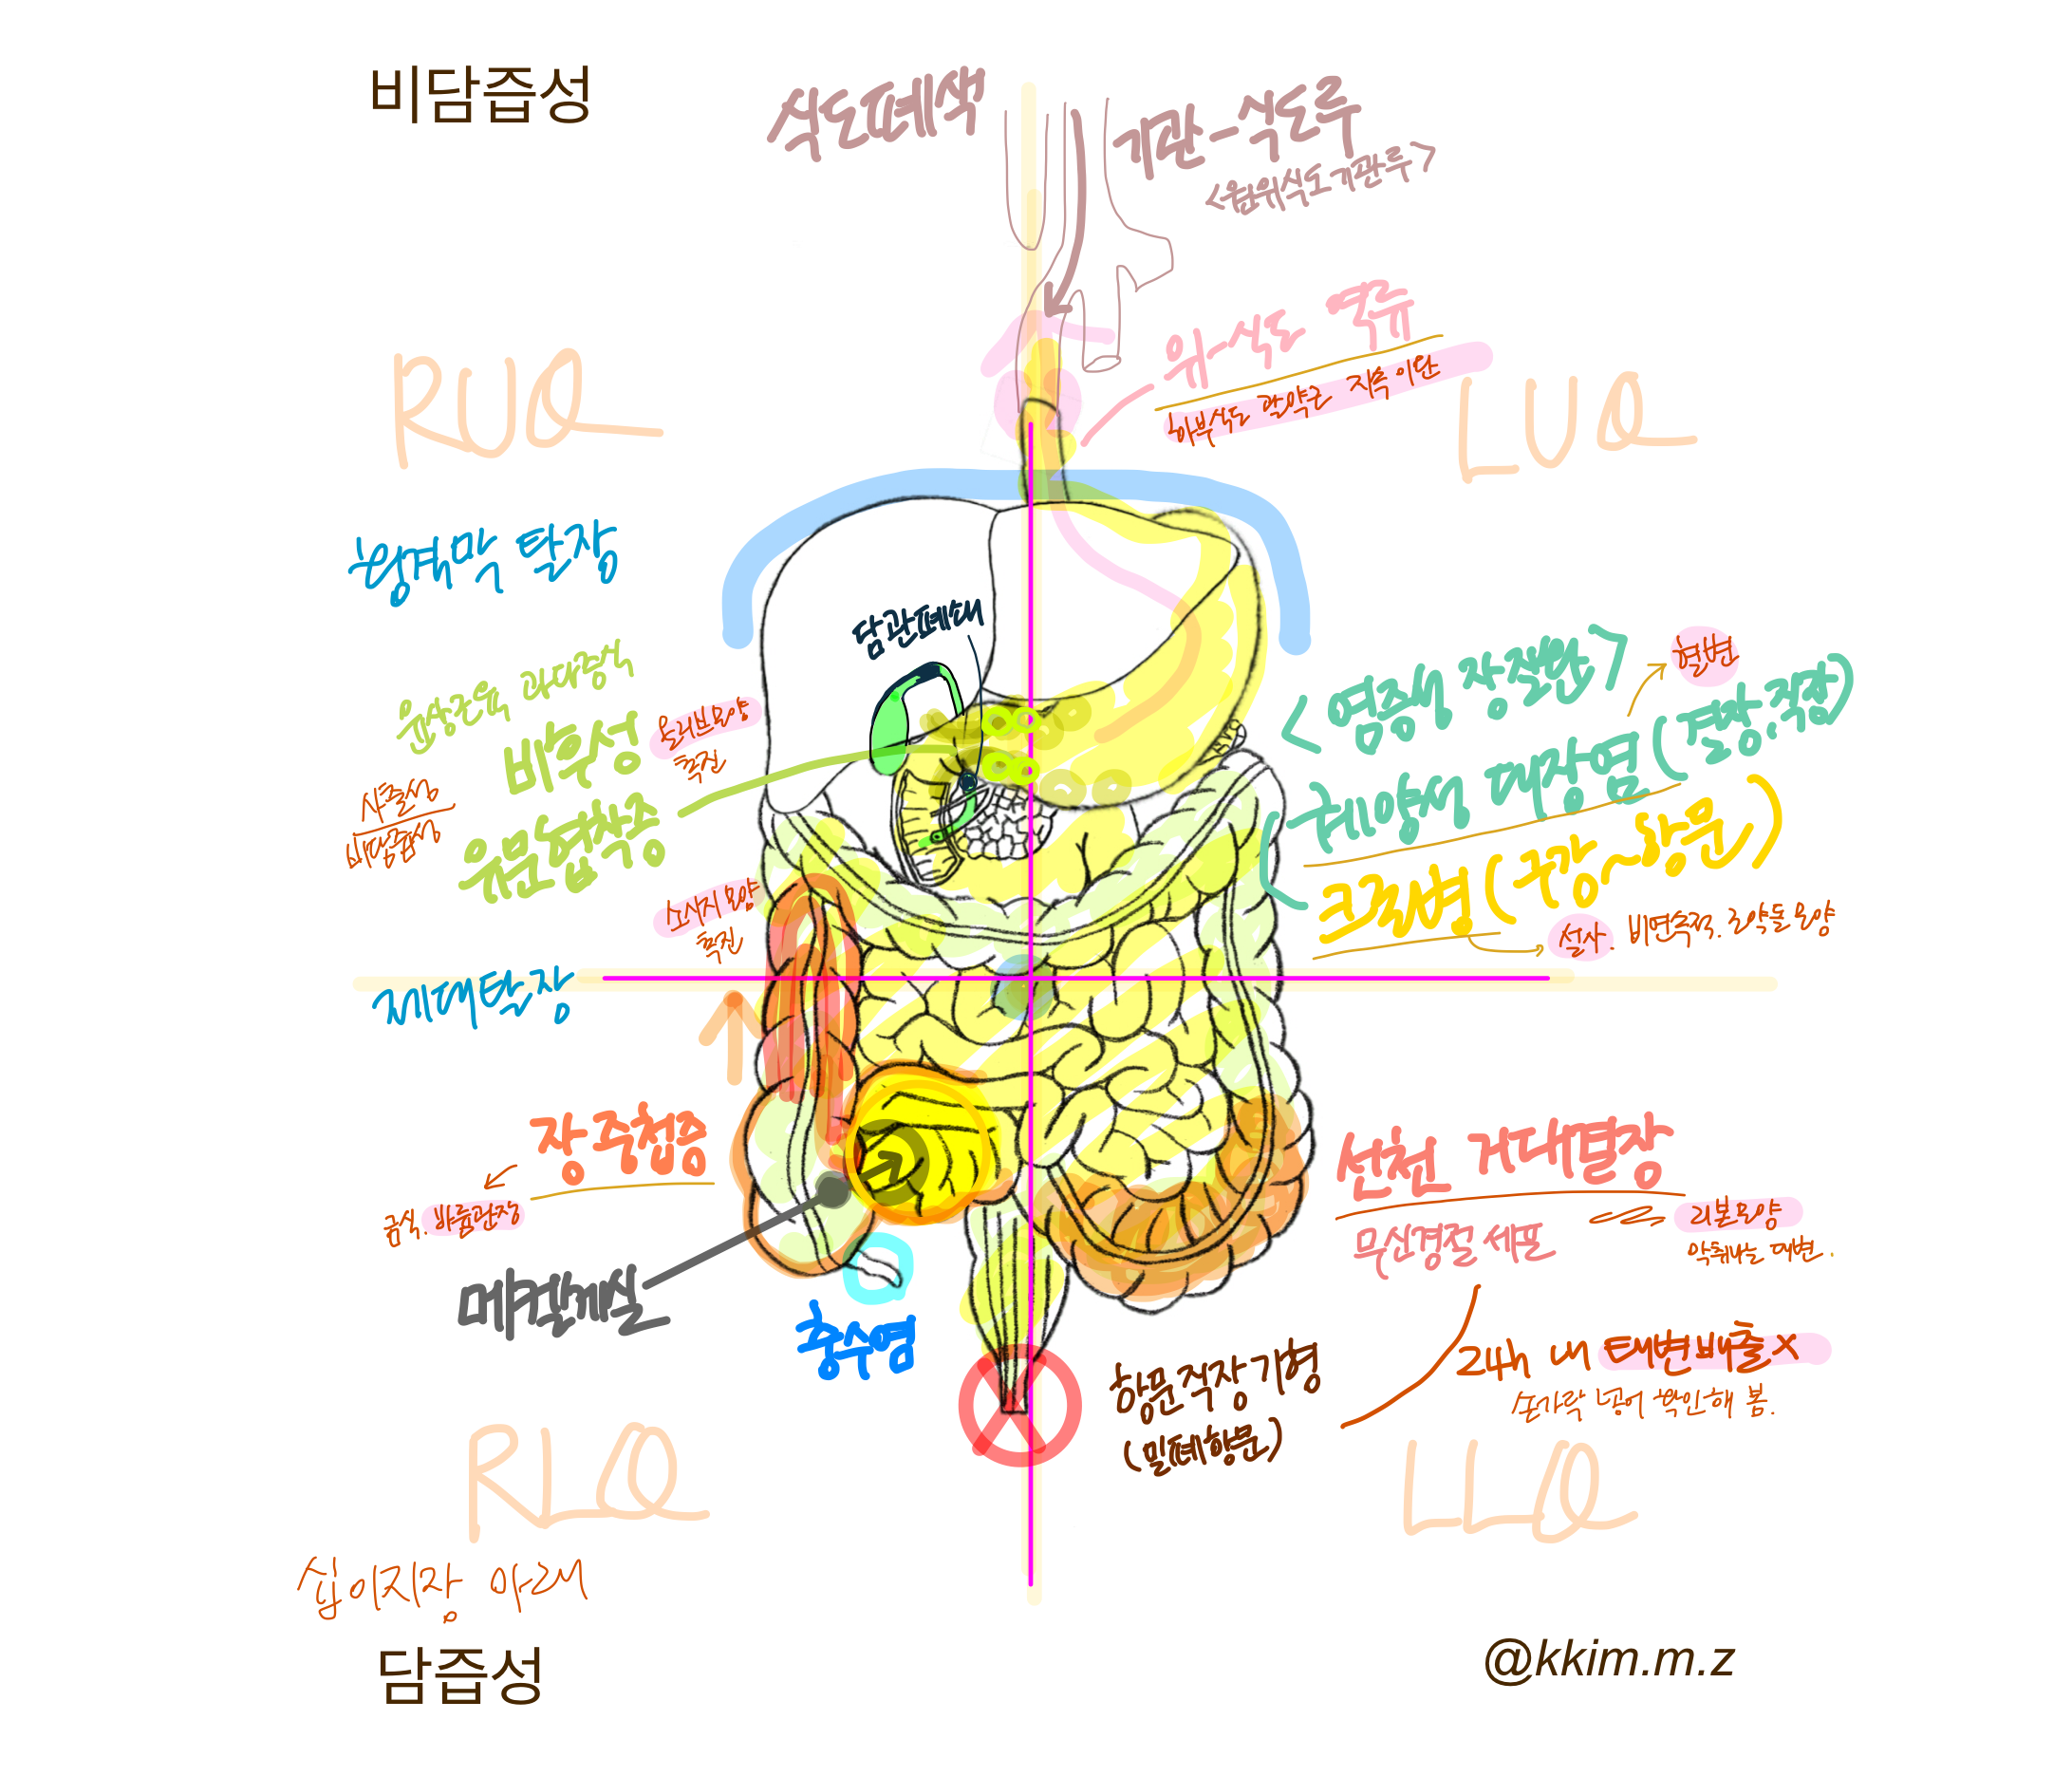 비담즙성
식도폐색
기관-식도루
<원위식도기관루>
위-식도 역류
하부식도 괄약근 지속 이완
RUQ
LUQ
횡격막 탈장
담관폐쇄
윤상근육 과대증식
비우성
유문협착증
올리브모양
촉진
사출성
비담즙성
<염증성 장질환>
혈변
궤양성 대장염 (결장,직장)
크론병 (구강~항문)
설사. 비연속적. 조약돌모양
소시지모양
촉진
제대탈장
장중첩증
금식. 바륨관장
메켈게실
충수염
선천 거대결장
무신경절 세포
리본모양
악취나는 대변.
24h 내 태변배출x
손가락 넣어 확인해 봄.
항문직장기형
(밀폐항문)
RLQ
LLQ
십이지장 아래
담즙성
@kkim.m.z